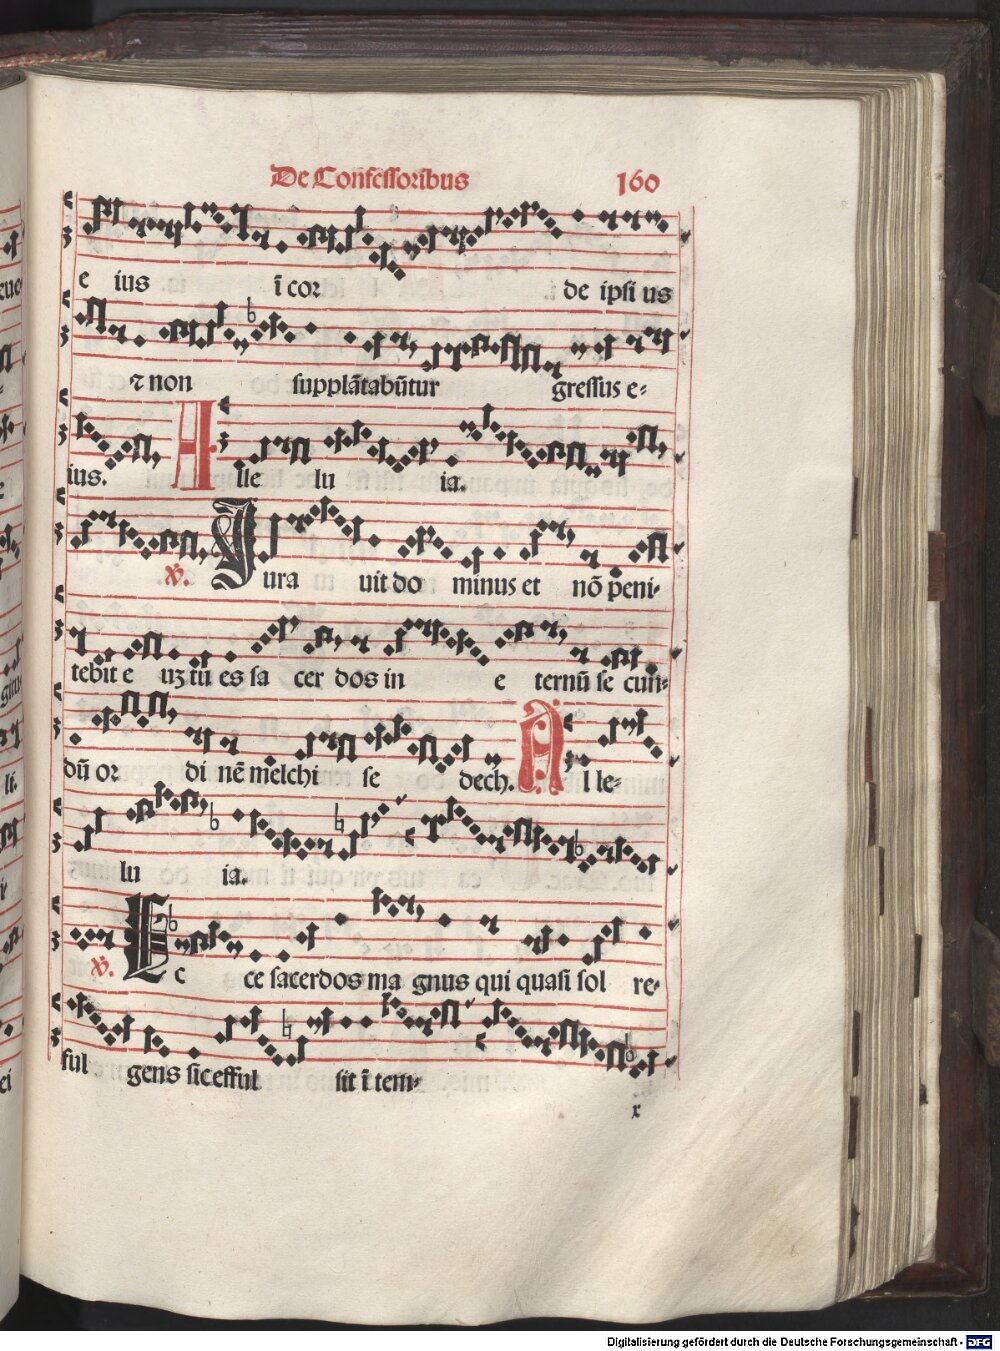 De Confessoribus 160
e ius ĩ cor de ipsi us
⁊ non supplãtabũtur gressus e-
ius. A lle lu ia.
℣. Jura uit do minus et nõ peni-
tebit e uʒ tũ es sa cer dos in e ternũ se cun-
dũ or di nẽ melchi se dech. Al le-
lu ia.
℣. Ec ce sacerdos ma gnus qui quasi sol re-
ful gens sic efful sit ĩ tem-
x
Digitalisierung gefördert durch die Deutsche Forschungsgemeinschaft - DFG